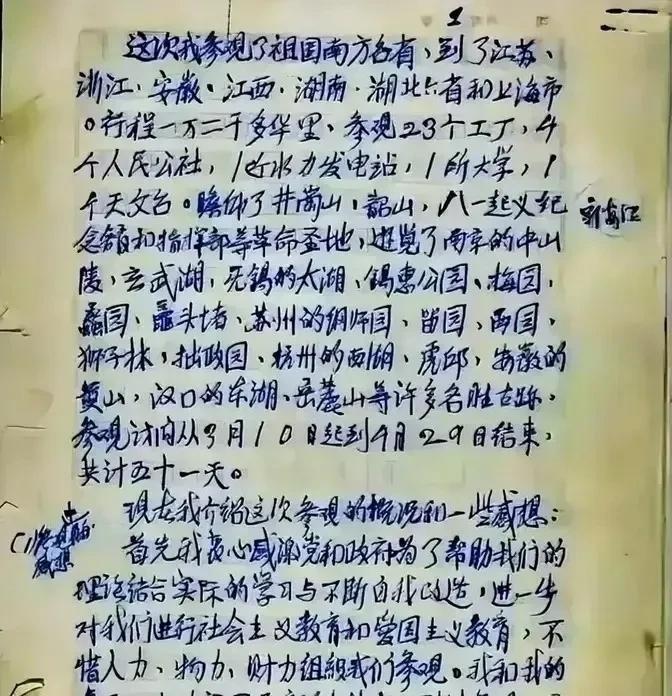 1
这次我参观了祖国南方各省、到了江苏、
浙江、安徽、江西、湖南、湖北六省和上海市
。行程一万二千多华里、参观23个工厂，4
个人民公社，1处水力发电站，1所大学，1
个天文台。瞻仰了井岗山、韶山，八一起义纪
念馆和指挥部等革命圣地，游览了南京的中山
陵，玄武湖，无锡的太湖、锡惠公园、梅园、
蠡园、鼋头堵、苏州的网师园、留园、西园、
狮子林，拙政园、杭州的西湖、虎邱，安徽的
黄山，汉口的东湖、岳麓山等许多名胜古跡。
参观访问从3月10日起到4月29日结束，
共计五十一天。
现在我介绍这次参观的概况和一些感想：
(1)
感想
首先我衷心感源党和政府为了帮助我们的
理论结合实际的学习与不断自我改造，进一步
对我们进行社会主义教育和爱国主义教育，不
惜人力、物力、财力组织我们参观。我和我的